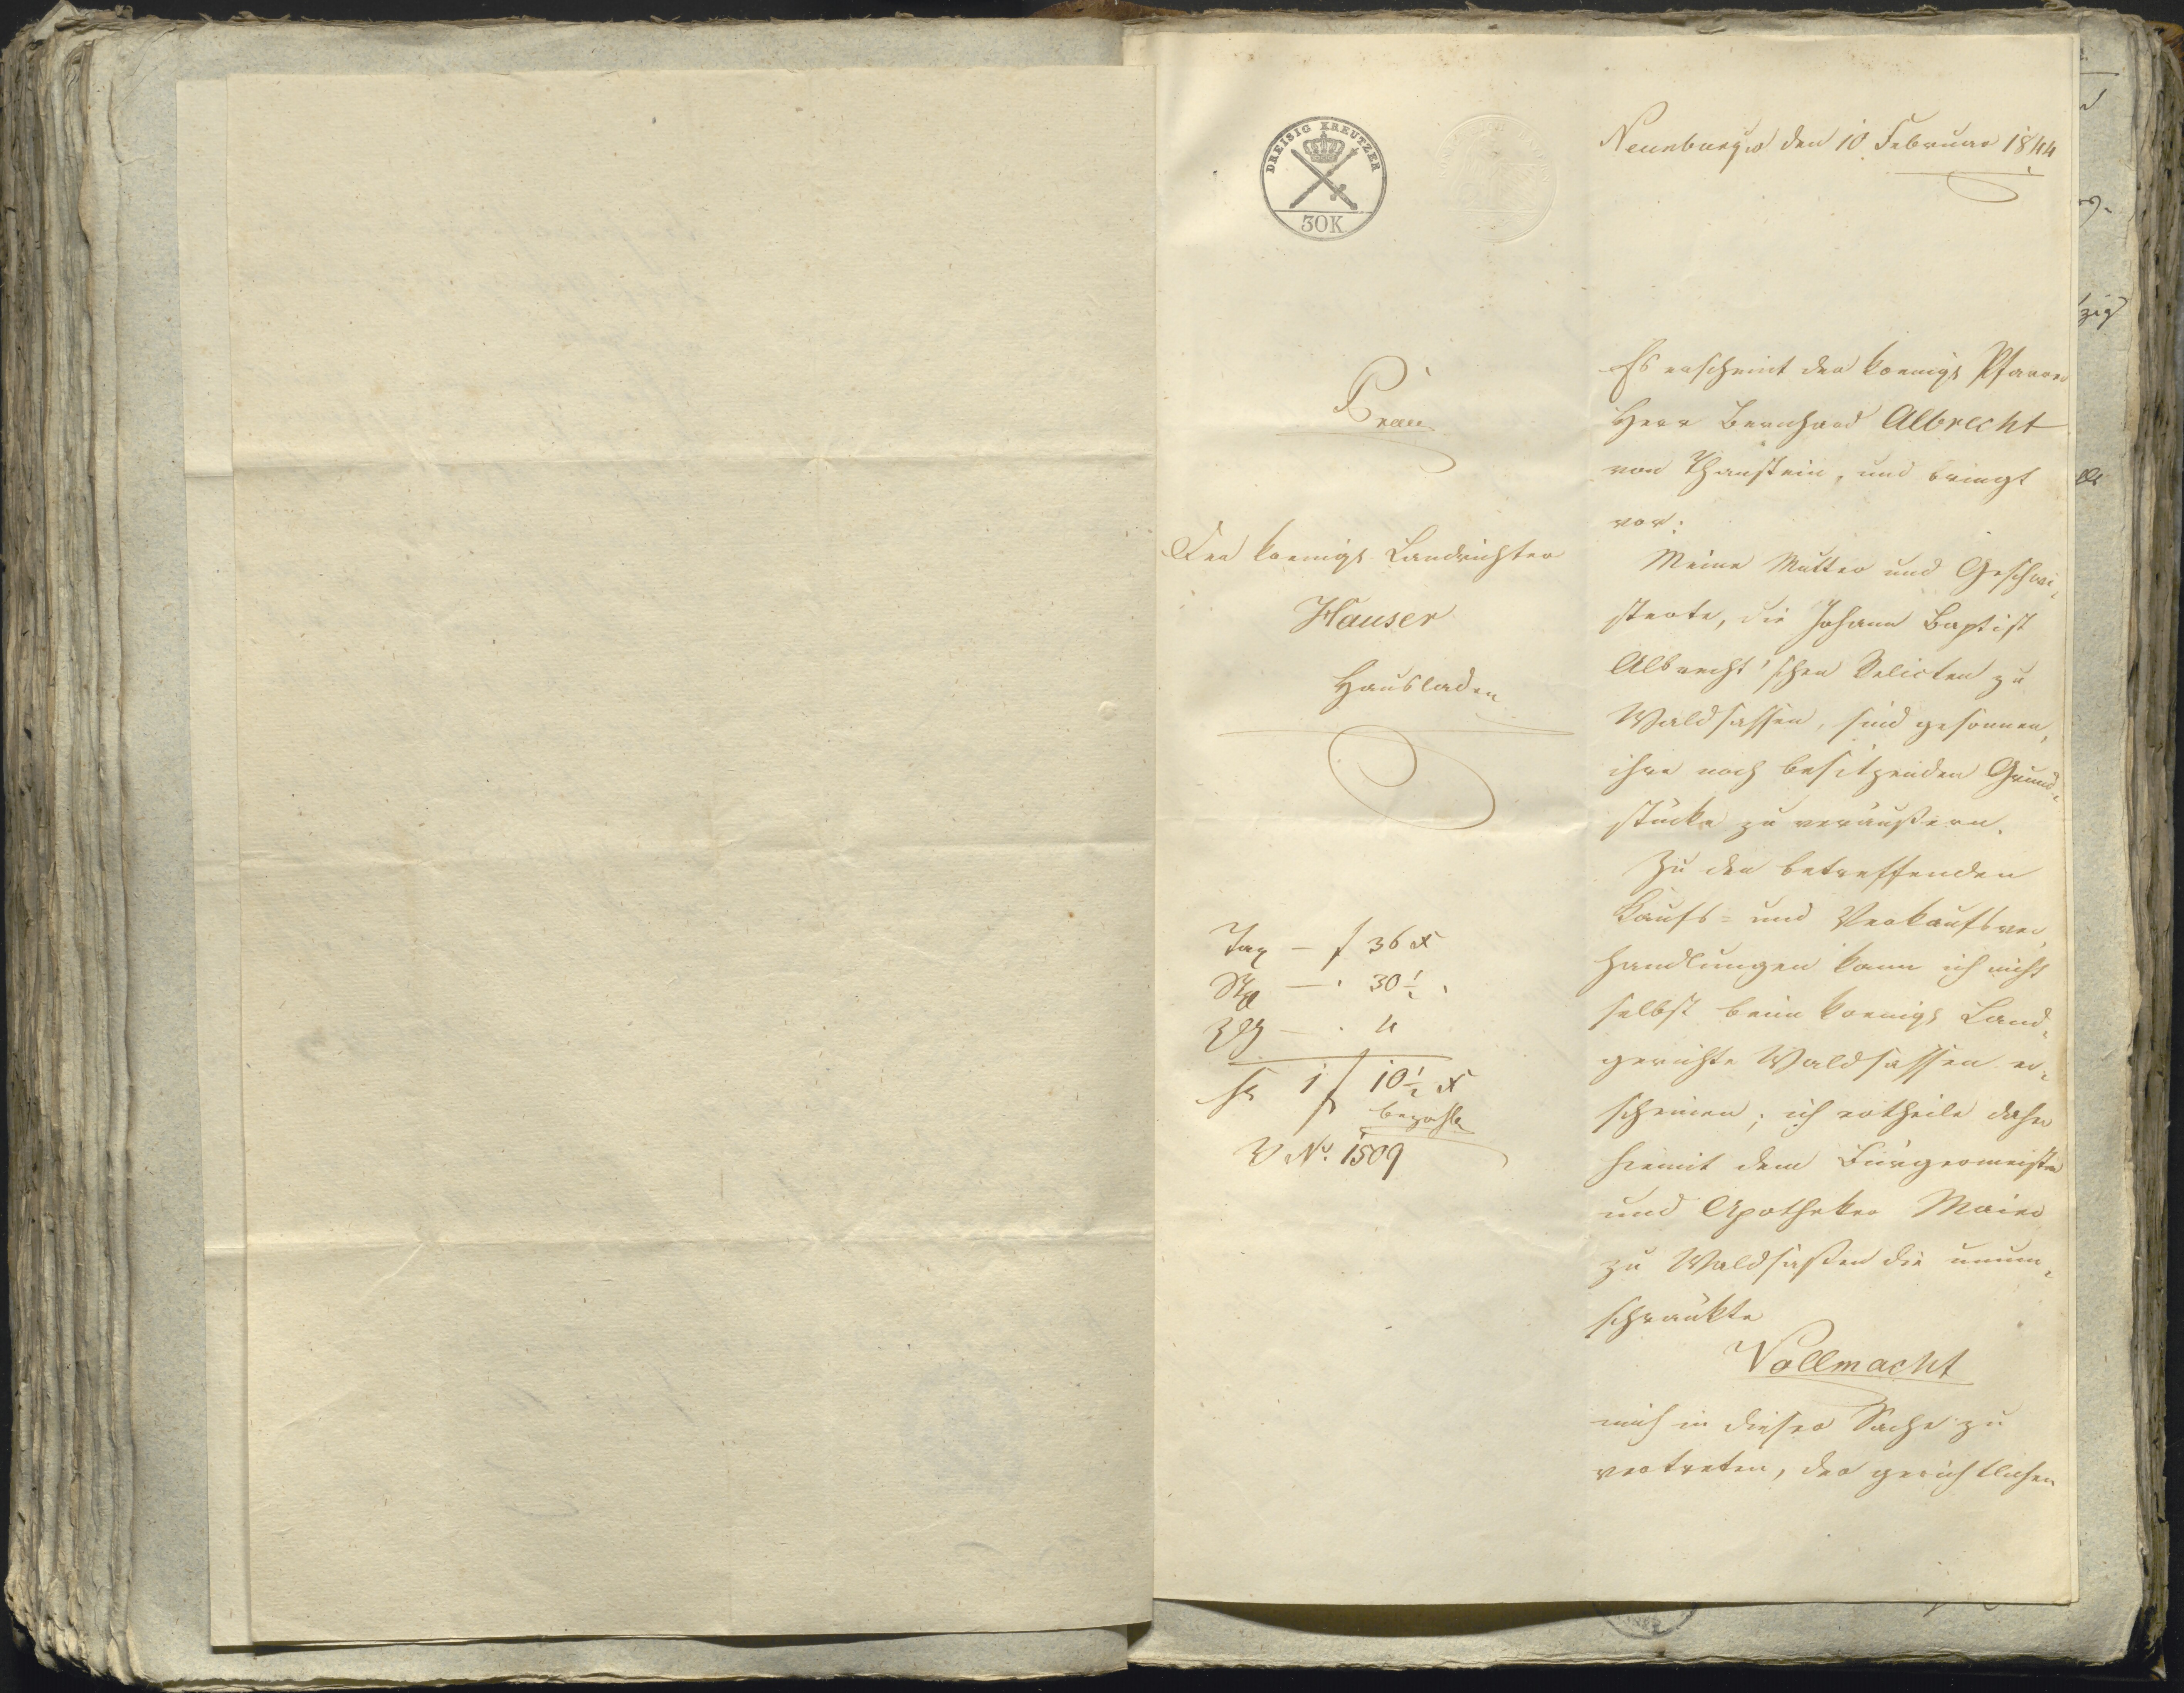 DREISIG KREUTZER
30K
Neunburg den 10 Februar 1844
Præs
Der koenigl. Landrichter
Hauser
Hausladen
Tax — f 36 x
— " 30 1/2 "
— " 4
Sa 1 f 10 1/2 x
bezahlt
No. 1509
Es erscheint der koenigl. Pfarrer
Herr Bernhard Albrecht
von Thanstein, und bringt
vor:
Meine Mutter und Geschwi-
sterte, die Johann Baptist
Albrecht'schen Relicten zu
Waldsassen, sind gesonnen,
ihre noch besitzenden Grund-
stücke zu veräußern.
Zu den betreffenden
Kaufs- und Verkaufsver-
handlungen kann ich nicht
selbst beim koenigl. Land-
gerichte Waldsassen er-
scheinen; ich ertheile daher
hiemit dem Bürgermeister
und Apotheker Maier
zu Waldsaßen die unum-
schränkte
Vollmacht
mich in dieser Sache zu
vertreten, der gerichtlichen